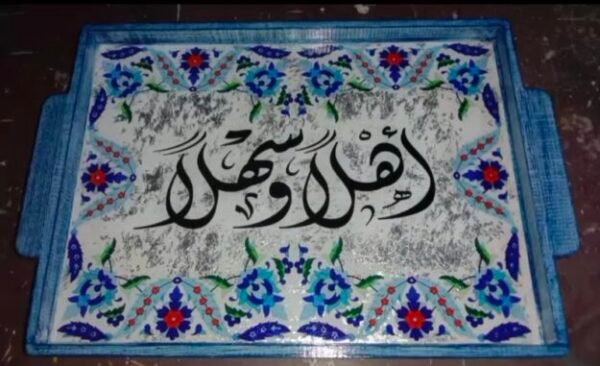 أهْلاً وسهْلاً